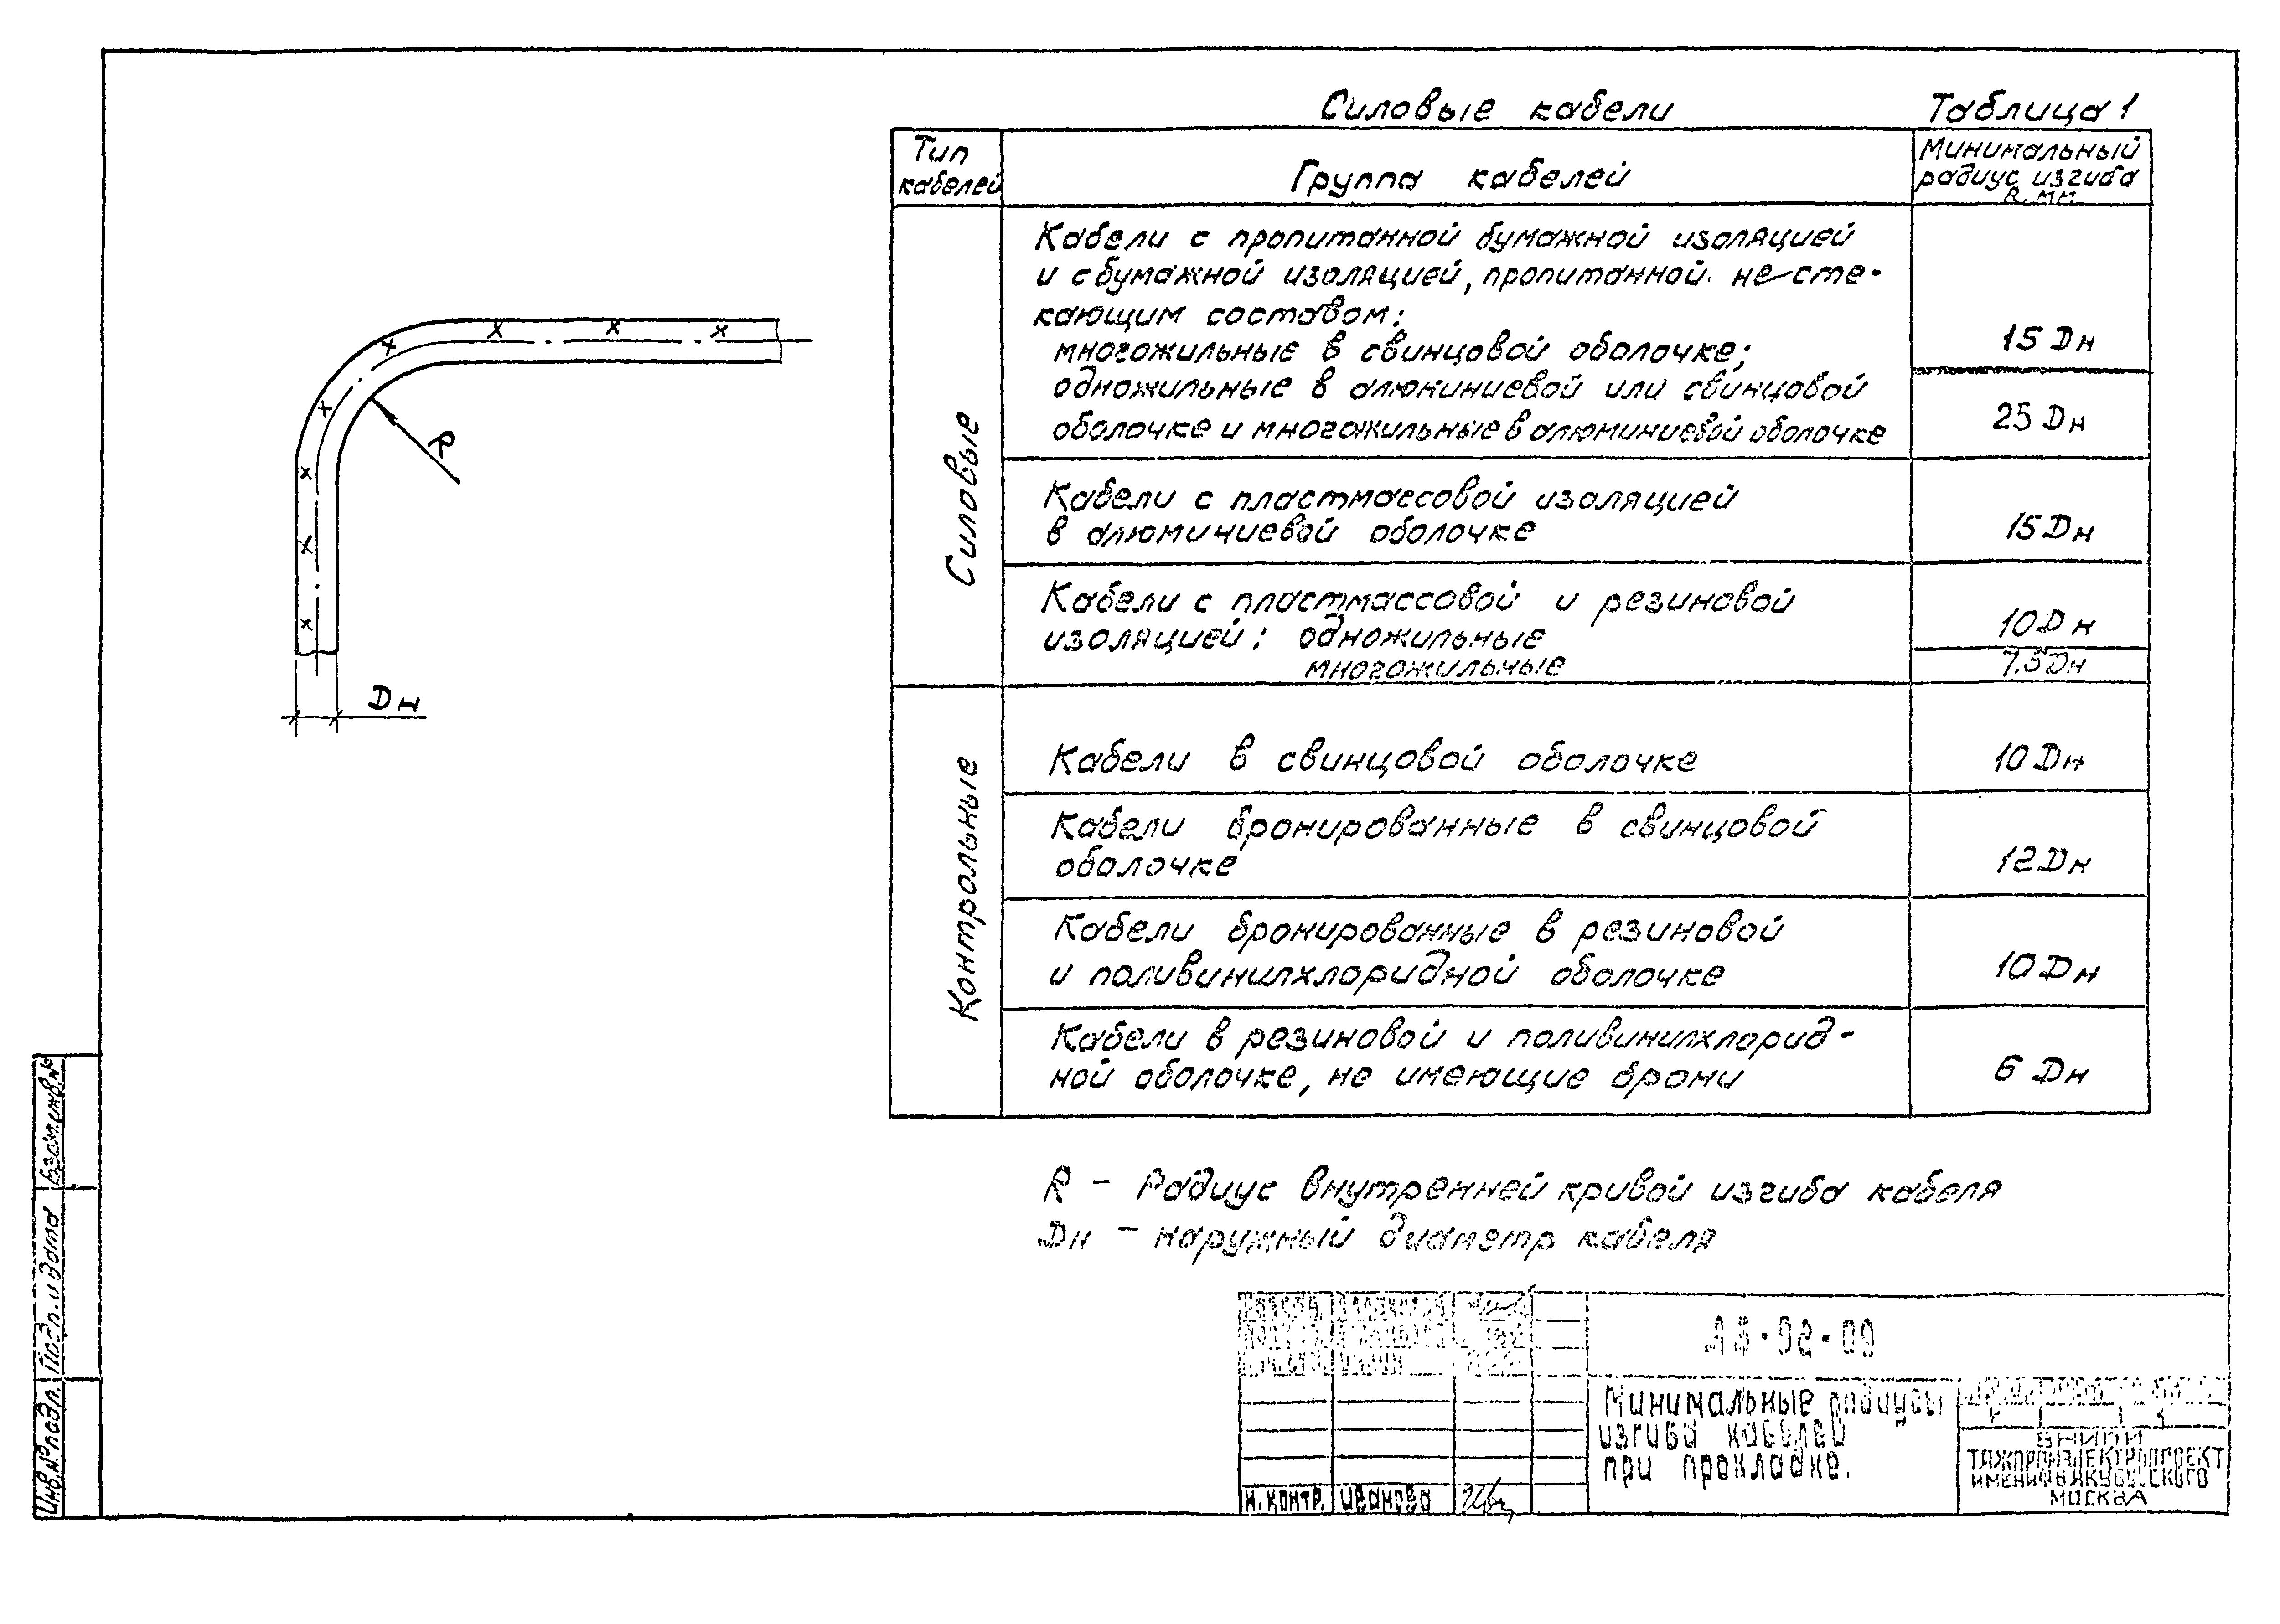 Силовые кабели Таблица 1
Тип кабелей
Группа кабелей
Минимальный
радиус изгиба
R, мм
Силовые
Кабели с пропитанной бумажной изоляцией
и с бумажной изоляцией, пропитанной не сте-
кающим составом:
многожильные в свинцовой оболочке;
15 Dн
одножильные в алюминиевой или свинцовой
оболочке и многожильные в алюминиевой оболочке
25 Dн
Кабели с пластмассовой изоляцией
в алюминиевой оболочке
15 Dн
Кабели с пластмассовой и резиновой
изоляцией: одножильные
10 Dн
многожильные
7.5 Dн
Контрольные
Кабели в свинцовой оболочке
10 Dн
Кабели бронированные в свинцовой
оболочке
12 Dн
Кабели бронированные в резиновой
и поливинилхлоридной оболочке
10 Dн
Кабели в резиновой и поливинилхлорид-
ной оболочке, не имеющие брони
6 Dн
R
Dн
R - Радиус внутренней кривой изгиба кабеля
Dн - наружный диаметр кабеля
Взам.инв.№
Подп. и дата
Инв.№ подл.
Минимальные радиусы
изгиба кабелей
при прокладке.
ВНИПИ
ТЯЖПРОМЭЛЕКТРОПРОЕКТ
МОСКВА
Н. контр. Иванова